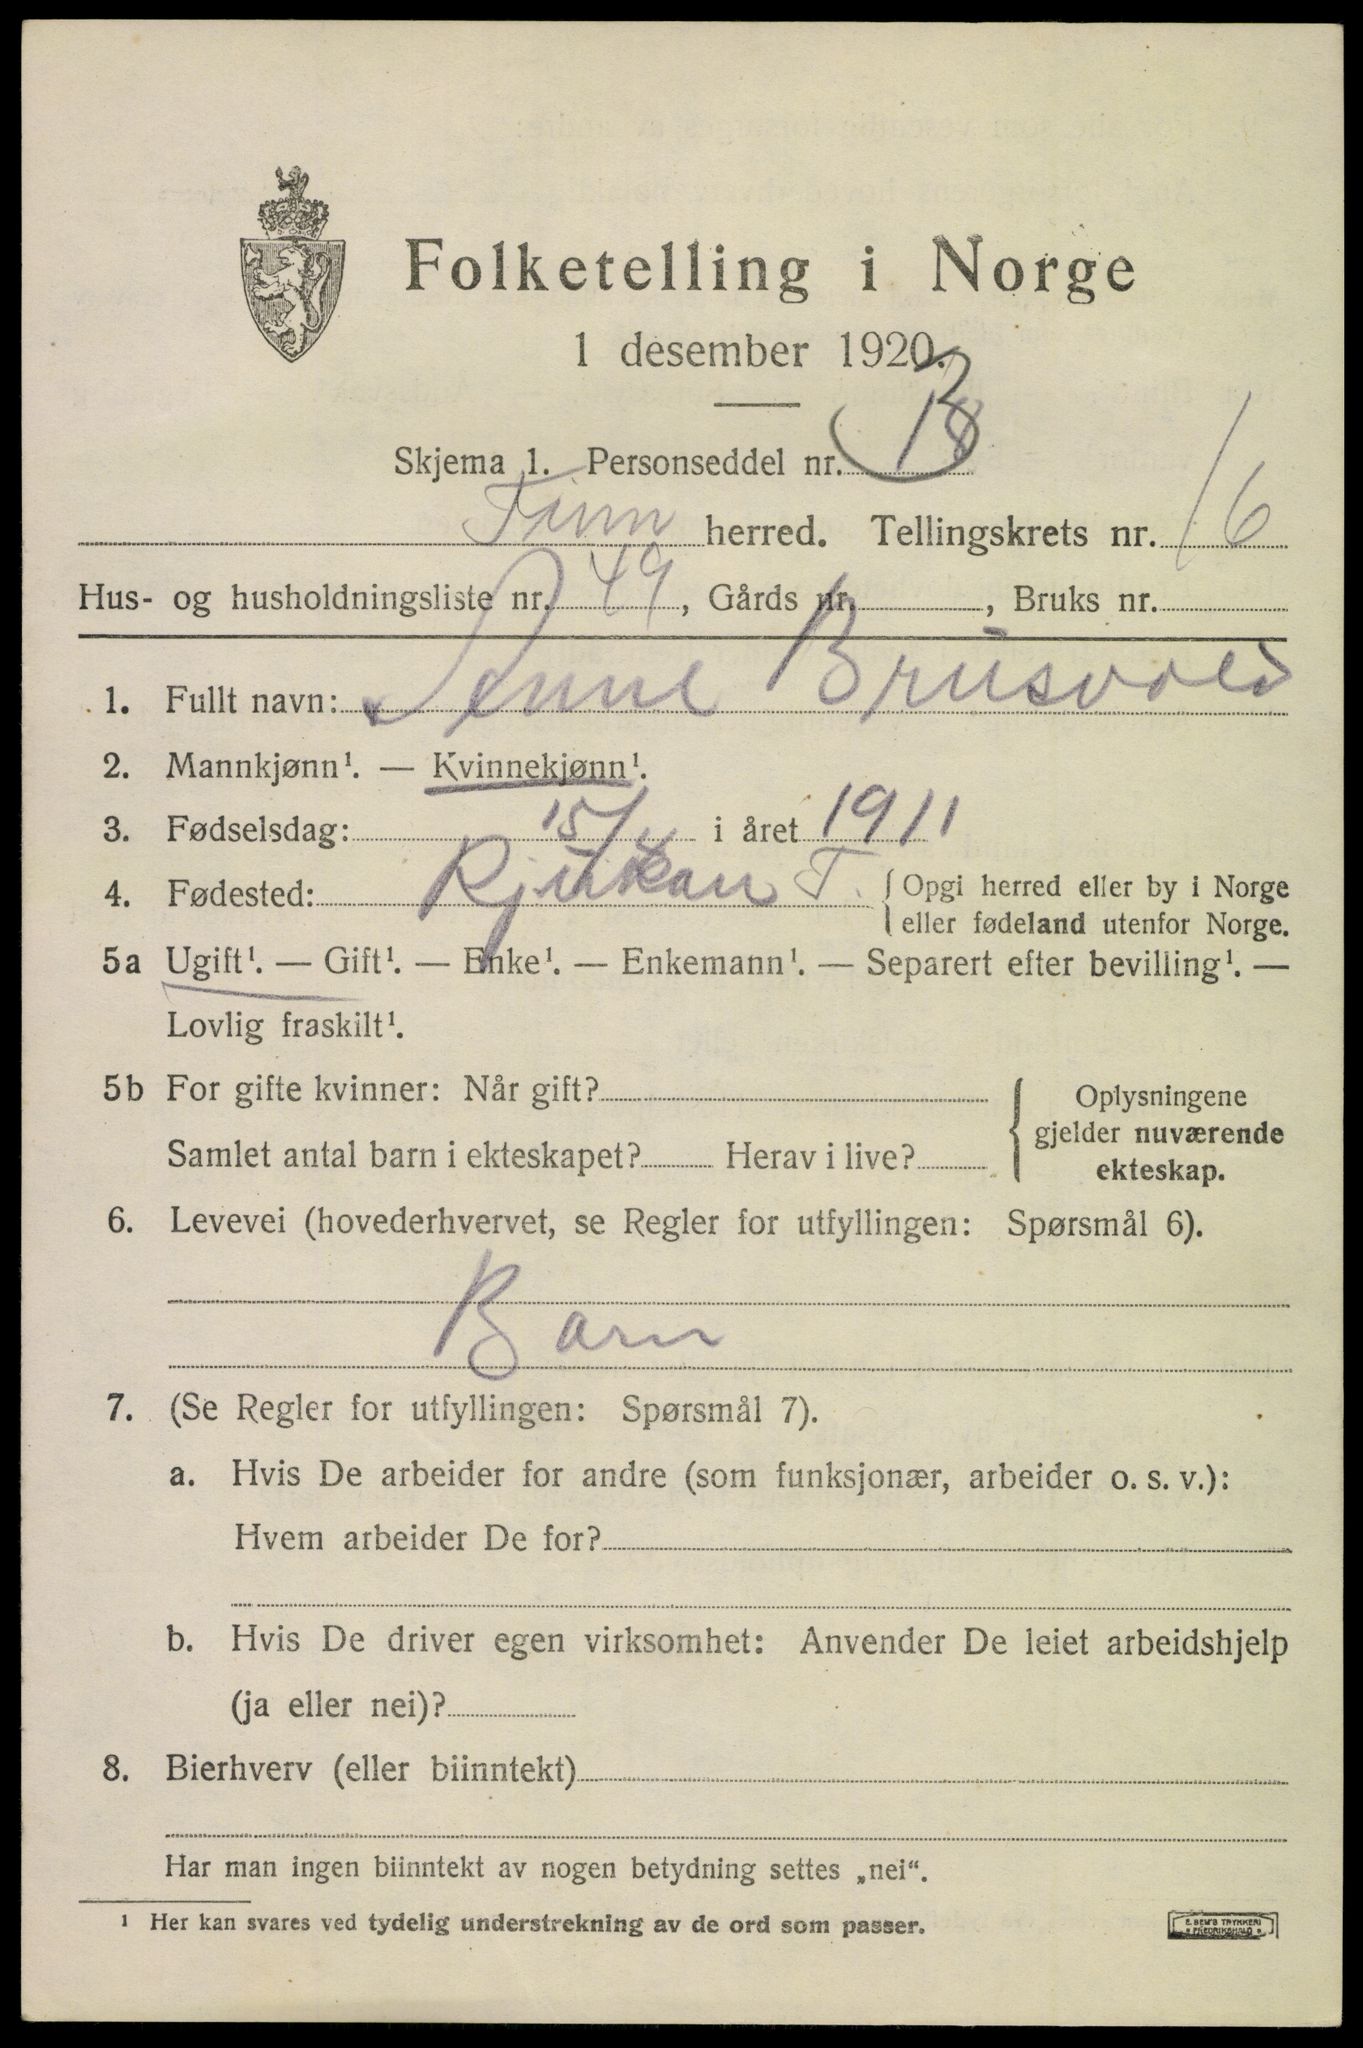 Folketelling i Norge
1 desember 1920.
Skjema 1. Personseddel nr.
Tinn herred. Tellingskrets nr. 16
Hus- og husholdningsliste nr. 49, Gårds nr. , Bruks nr.
1. Fullt navn: Anne Brusvold
2. Mannkjønn¹. — Kvinnekjønn¹.
3. Fødselsdag: 15/4 i året 1911
4. Fødested: Rjukan T. { Opgi herred eller by i Norge
eller fødeland utenfor Norge.
5a Ugift¹. — Gift¹. — Enke¹. — Enkemann¹. — Separert efter bevilling¹. —
Lovlig fraskilt¹.
5b For gifte kvinner: Når gift? } Oplysningene
gjelder nuværende
Samlet antal barn i ekteskapet? Herav i live? ekteskap.
6. Levevei (hovederhvervet, se Regler for utfyllingen: Spørsmål 6).
Barn
7. (Se Regler for utfyllingen: Spørsmål 7).
a. Hvis De arbeider for andre (som funksjonær, arbeider o. s. v.):
Hvem arbeider De for?
b. Hvis De driver egen virksomhet: Anvender De leiet arbeidshjelp
(ja eller nei)?
8. Bierhverv (eller biinntekt)
Har man ingen biinntekt av nogen betydning settes „nei“.
¹ Her kan svares ved tydelig understrekning av de ord som passer.
E. SEM'S TRYKKERI
FREDRIKSHALD